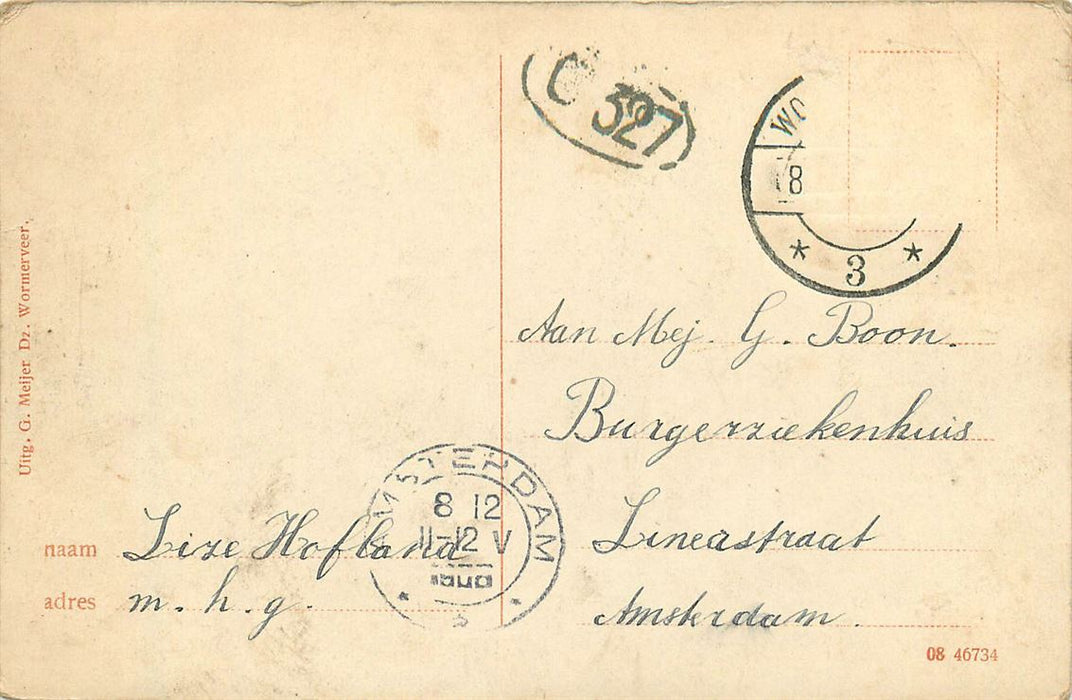 C 327
WO
8
3
Aan Mej. G. Boon.
Burgerziekenhuis
Lineastraat
Amsterdam.
Uitg. G. Meijer Dz. Wormerveer.
AMSTERDAM
8 12
11-12 V
naam Lize Hofland
adres m. h. g.
08 46734